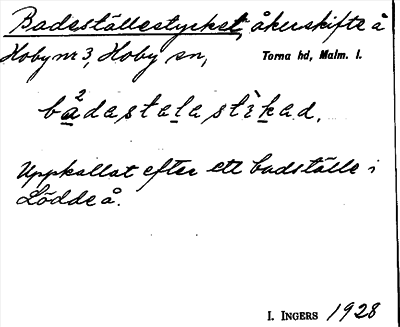 Badeställestycket, åkerskifte å
Hoby nr 3, Hoby sn, Torna hd, Malm. l.
bå²dastalastìkad.
Uppkallat efter ett badställe i
Lödde å.
I. INGERS 1928